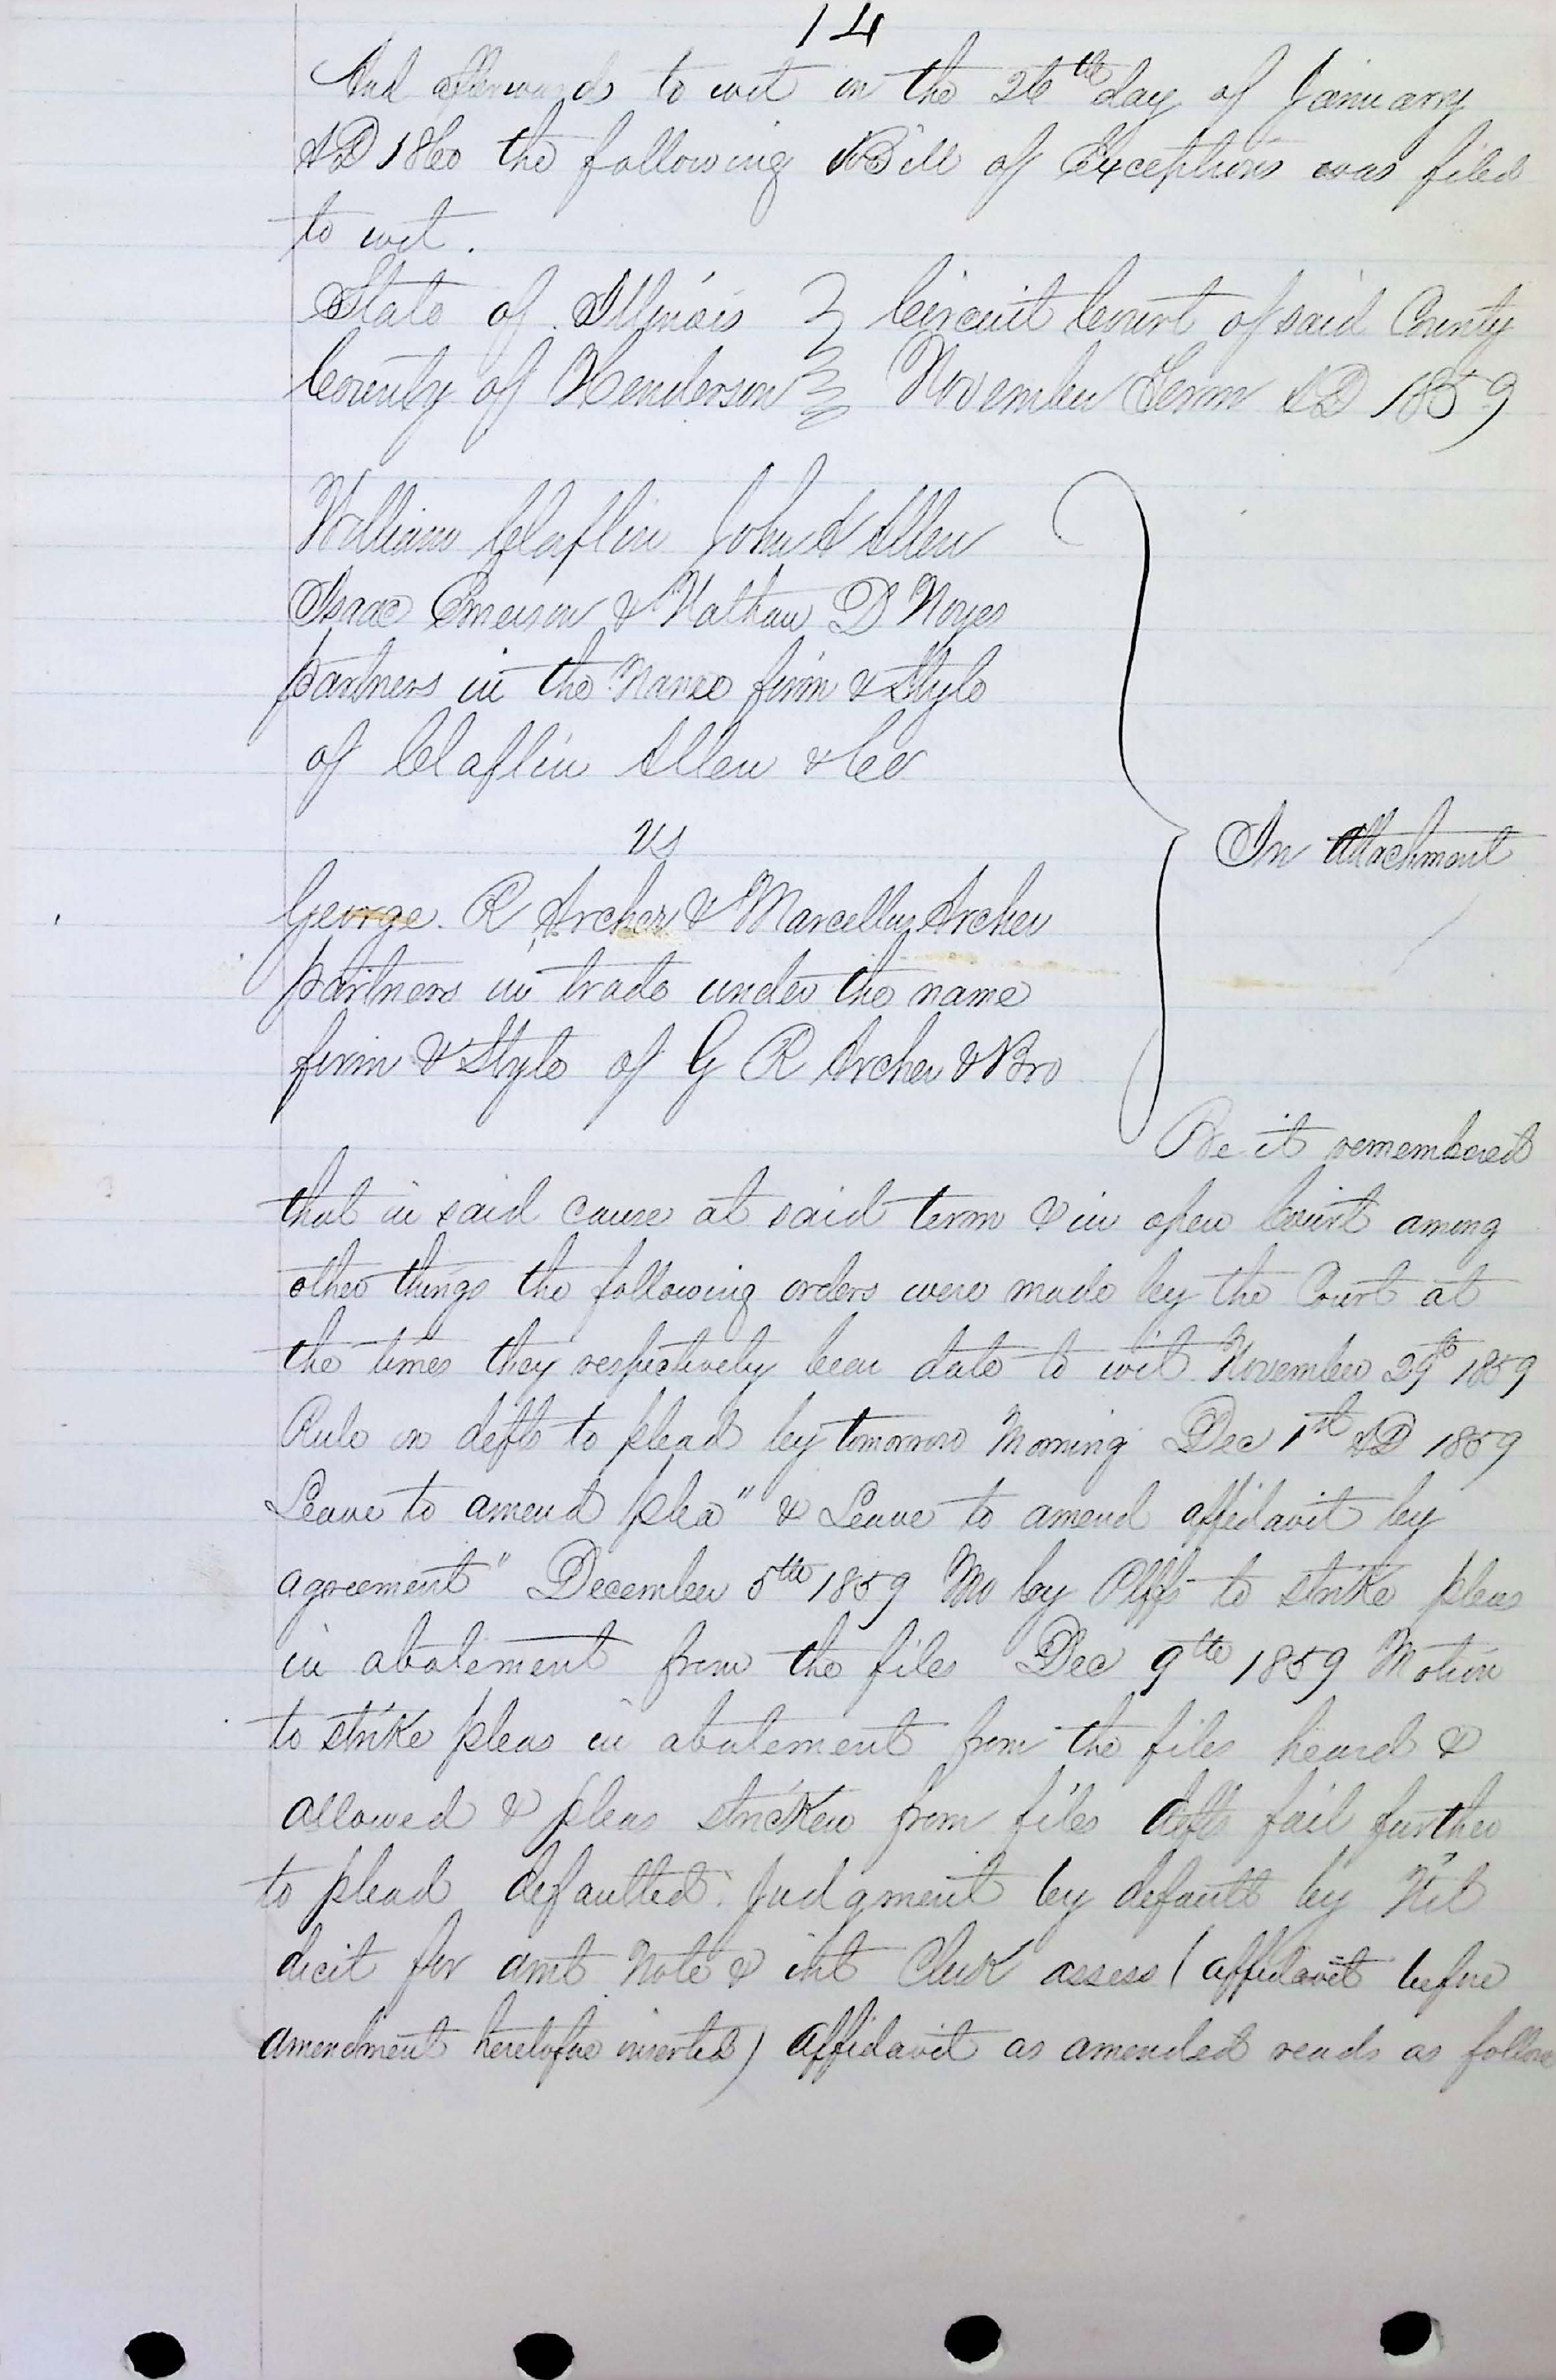 14
And afterwards to wit on the 26th day of January
AD 1860 the following Bill of Exceptions was filed
to wit.
State of Illinois } Circuit Court of said County
County of Henderson } November Term AD 1859
William Claflin John A Allen
Isaac Emerson & Nathan D Noyes
partners in the Name firm & Style
of Claflin Allen & Co
vs
In Attachment
George. R Archer & Marcellus Archer
partners in trade under the name
firm & Style of G R Archer & Bro
Be it remembered
that in said cause at said term & in open Court among
other things the following orders were made by the Court at
the times they respectively bear date to wit November 29th 1859
Rule on defts to plead by tomorrow Morning Dec 1st AD 1859
Leave to amend plea" & Leave to amend affidavit by
agreement" December 5th 1859 Mo by Plffs to strike pleas
in abatement from the files Dec 9th 1859 Motion
to strike pleas in abatement from the files heard &
allowed & pleas stricken from files defts fail further
to plead defaulted. Judgment by default by Nil
dicit for amt Note & int Clerk assess (affidavit before
amendment heretofore inserted) affidavit as amended reads as follows